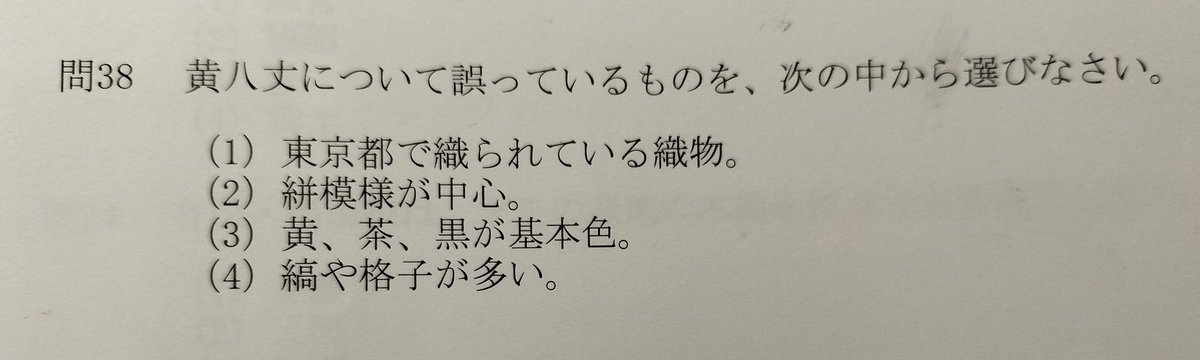 問38 黄八丈について誤っているものを、次の中から選びなさい。
(1) 東京都で織られている織物。
(2) 絣模様が中心。
(3) 黄、茶、黒が基本色。
(4) 縞や格子が多い。